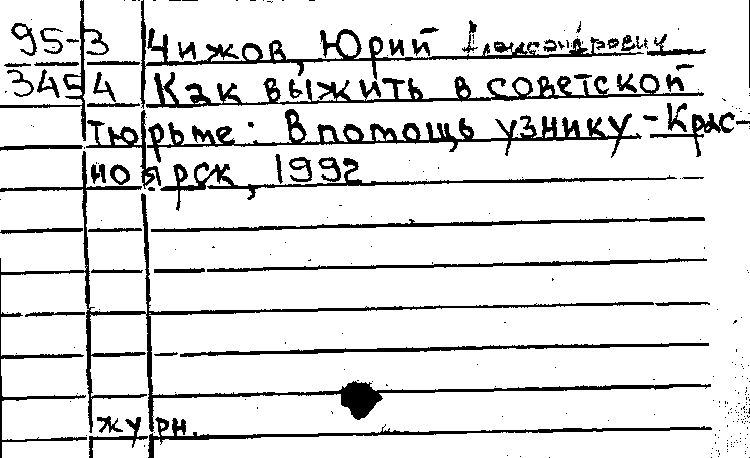 95-3 Чижов, Юрий Александрович
3454 Как выжить в советской
тюрьме: В помощь узнику.-Крас-
ноярск, 1992
журн.